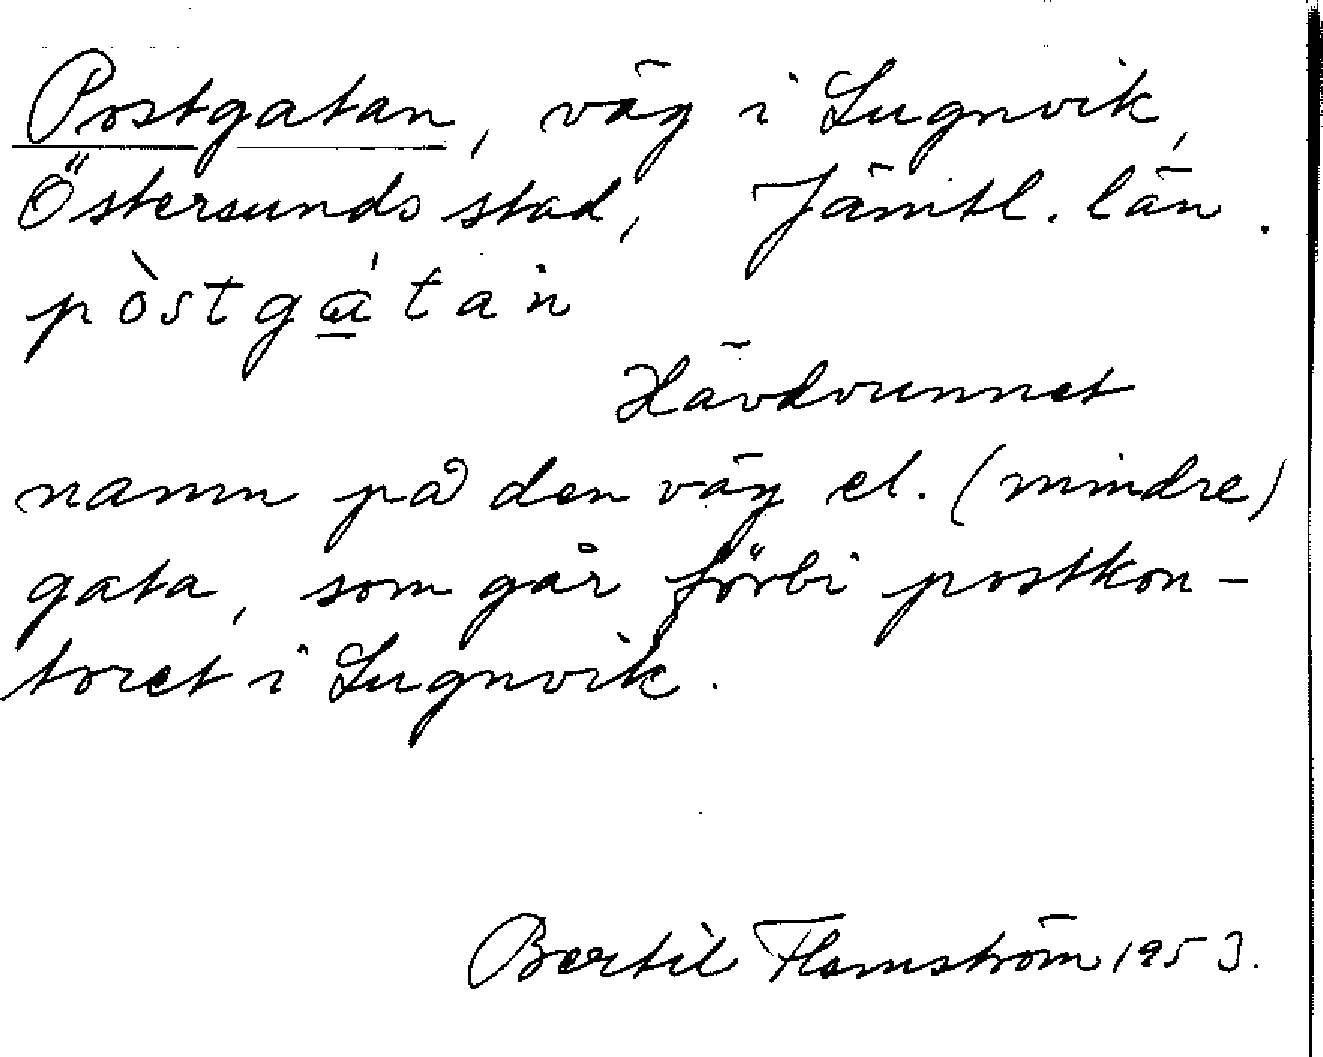 Postgatan, väg i Lugnvik,
Östersunds stad, Jämtl. län.
pòstgá̱tan
Hävdvunnet
namn på den väg el. (mindre)
gata, som går förbi postkon-
toret i Lugnvik.
Bertil Flemström 1953.